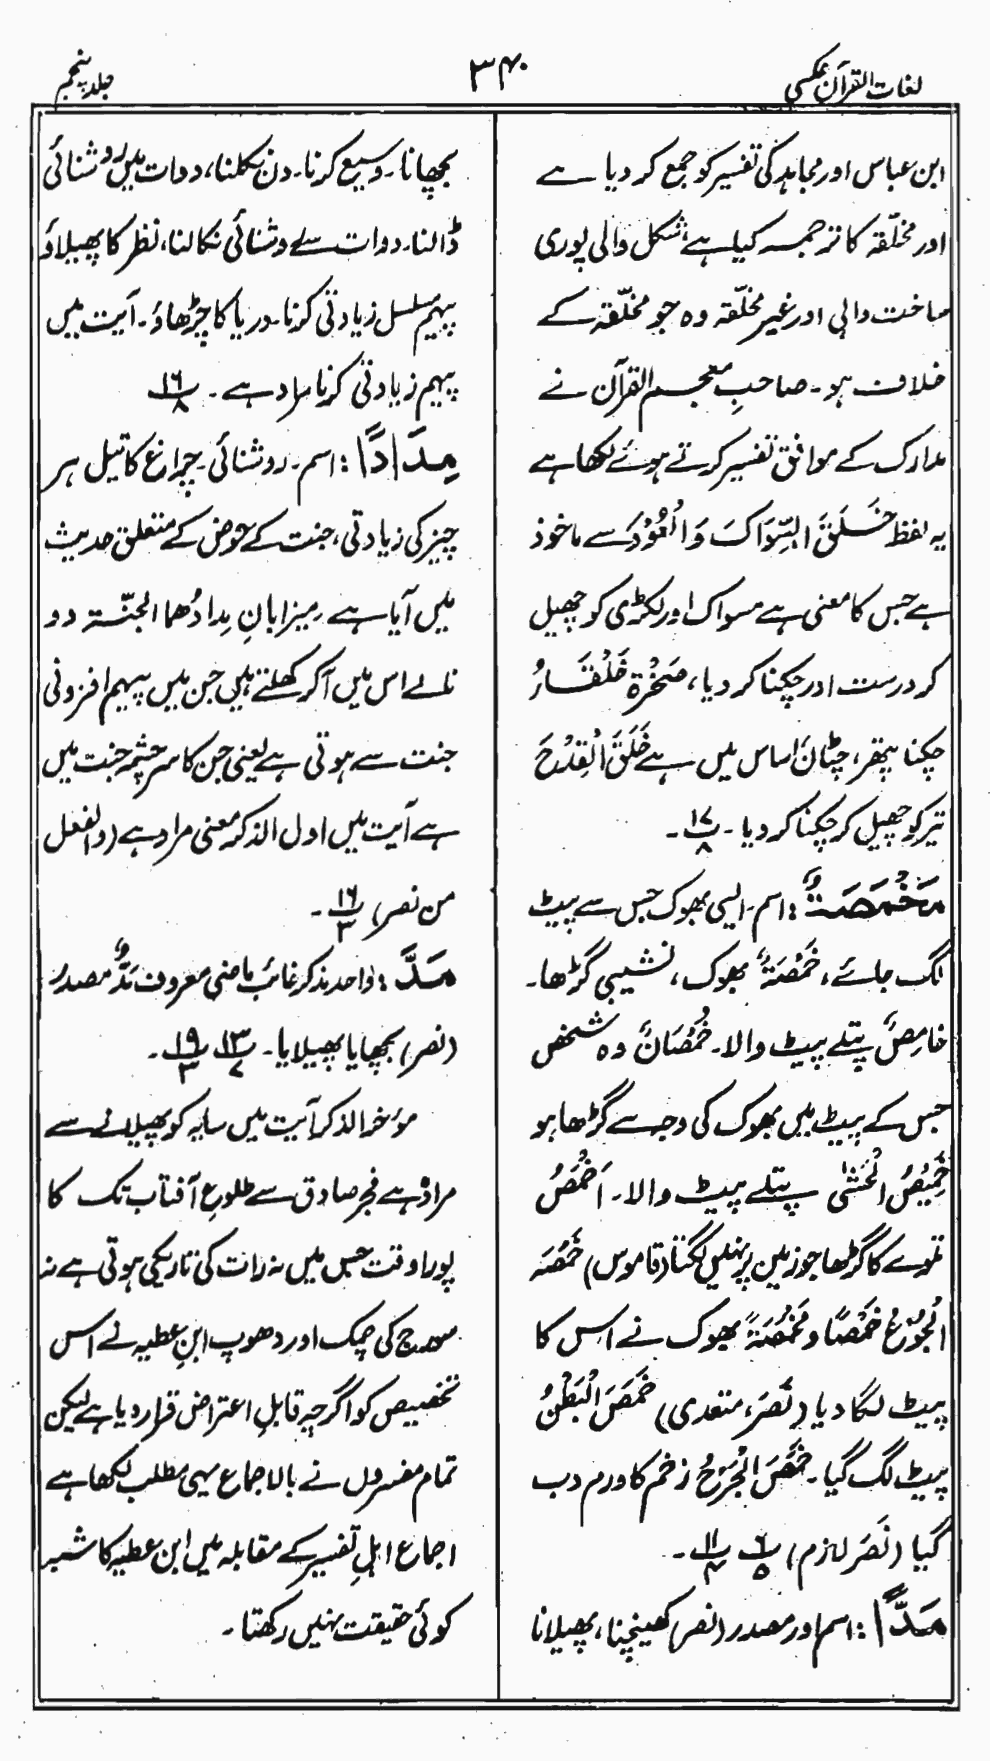 لغات القرآن عکسی
۳۴۰
جلد پنجم
ابن عباس اور مجاہد کی تفسیر کو جمع کر دیا ہے
اور مخلّقہ کا ترجمہ کیا ہے شکل والی پوری
ساخت والی اور غیر مخلّقہ وہ جو مخلّقہ کے
خلاف ہو۔ صاحبِ معجم القرآن نے
مدارک کے موافق تفسیر کرتے ہوئے لکھا ہے
یہ لفظ خَلَقَ السِّوَاکَ وَالْعُوْدَ سے ماخوذ
ہے جس کا معنی ہے مسواک اور لکڑی کو چھیل
کر درست اور چکنا کر دیا، صَخْرَۃ خَلْقَاءُ
چکنا پتھر، چٹان اساس میں ہے خَلَقَ الْقِدْحَ
تیر کو چھیل کر چکنا کر دیا۔ ۱۷/۸ ۔
مَخْمَصَۃٌ: اسم۔ ایسی بھوک جس سے پیٹ
لگ جائے، خَمْصَۃٌ بھوک، نشیبی گڑھا۔
خامِصٌ پتلے پیٹ والا۔ خُمْصَانٌ وہ شخص
جس کے پیٹ میں بھوک کی وجہ سے گڑھا ہو
خَمِیْصُ الْحَشٰی پتلے پیٹ والا۔ اَخْمَصُ
تلوے کا گڑھا جو زمین پر نہیں لگتا (قاموس) خَمَصَہُ
الْجُوْعُ خَمْصًا و مَخْمَصَۃً بھوک نے اس کا
پیٹ لگا دیا (نَصَرَ، متعدی) خَمَصَ الْبَطْنُ
پیٹ لگ گیا۔ خَمَصَ الْجُرْحُ زخم کا ورم دب
گیا (نَصَرَ لازم) ۶/۵ ۱۱/۴ ۔
مَدًّا: اسم اور مصدر (نصر) کھینچنا، پھیلانا
بچھانا۔ وسیع کرنا۔ دن نکلنا، دوات میں روشنائی
ڈالنا۔ دوات سے روشنائی نکالنا، نظر کا پھیلاؤ
پیہم مسلسل زیادتی کرنا۔ دریا کا چڑھاؤ۔ آیت میں
پیہم زیادتی کرنا مراد ہے۔ ۱۶/۸
مِدَادًا: اسم۔ روشنائی۔ چراغ کا تیل ہر
چیز کی زیادتی، جنت کے حوض کے متعلق حدیث
میں آیا ہے مِیْزابانِ مِدادُھما الجنّۃ دو
نالے اس میں آکر کھلتے ہیں جن میں پیہم افزونی
جنت سے ہوتی ہے یعنی جن کا سرچشمہ جنت میں
ہے آیت میں اول الذکر معنی مراد ہے (والفعل
من نصر) ۱۶/۳ ۔
مَدَّ: واحد مذکر غائب ماضی معروف مَدٌّ مصدر
(نصر) بچھایا پھیلایا۔ ۱۳/۷ ۱۹/۳ ۔
مؤخر الذکر آیت میں سایہ کو پھیلانے سے
مراد ہے فجر صادق سے طلوعِ آفتاب تک کا
پورا وقت جس میں نہ رات کی تاریکی ہوتی ہے نہ
سورج کی چمک اور دھوپ ابنِ عطیہ نے اس
تخصیص کو اگرچہ قابلِ اعتراض قرار دیا ہے لیکن
تمام مفسروں نے بالاجماع یہی مطلب لکھا ہے
اجماع اہلِ تفسیر کے مقابلہ میں ابن عطیہ کا شبہ
کوئی حقیقت نہیں رکھتا۔